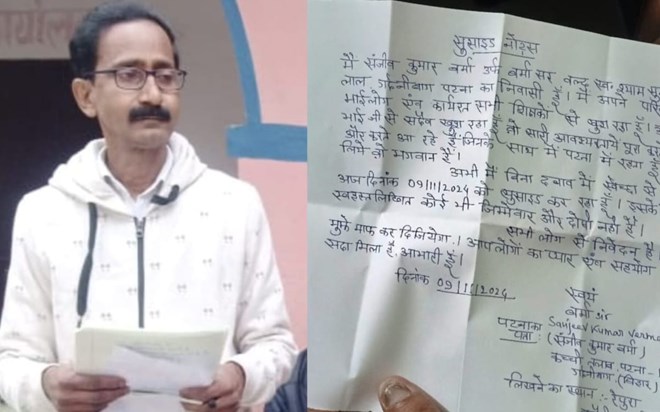 कार्यालय
सुसाइड नोट्स
मैं संजीव कुमार वर्मा उर्फ वर्मा सर वल्द स्व. श्याम सु
लाल गर्दनीबाग पटना का निवासी हूँ। मैं अपने परि
भाईलोग एंव कार्यरत सभी शिक्षकों से खुश रहा हूँ।
भाई जी से सदैव खुश रहा हूँ जो सारी आवश्यकताये पूरी
और करते आ रहे हैं जिनके साथ में पटना में रहता हूँ
लिये जो भगवान हैं।
अभी मैं बिना दबाव में स्वेच्छा से
आज दिनांक 09/11/2024 को सुसाइड कर रहा हूँ। इसके
स्वहस्तलिखित कोई भी जिम्मेवार और दोषी नहीं है।
सभी लोग से निवेदन है।
मुझे माफ कर दिजियेगा। आपलोगों का प्यार एंव सहयोग
सदा मिला है, आभारी हूँ।
दिनांक 09/11/2024
स्वयं
वर्मा सर
पटना का Sanjeev Kumar Verma
पता : (संजीव कुमार वर्मा)
कच्ची तलाब, पटना -
गर्दनीबाग (बिहार)
लिखने का स्थान :- रैपुरा